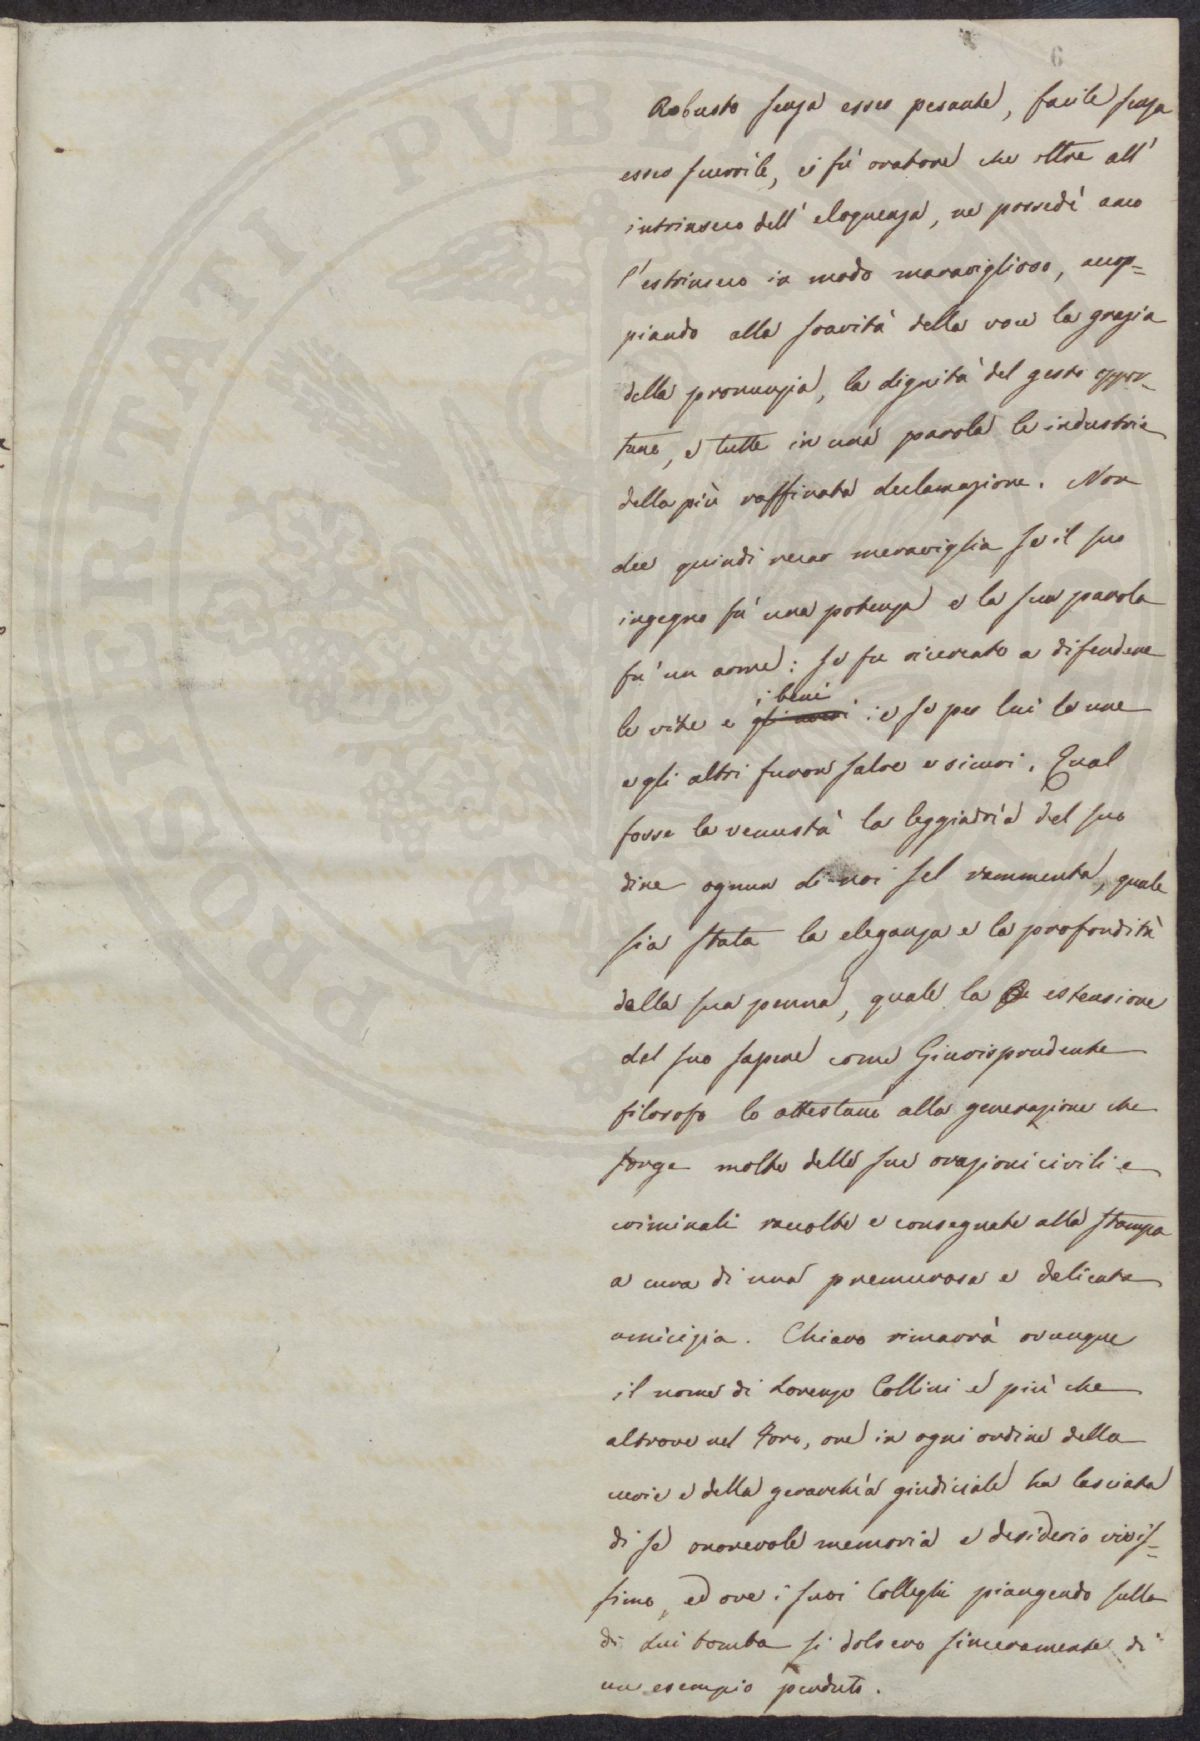 6
Robusto senza esser pesante, facile senza
esser servile, ei fù oratore che oltre all'
intrinseco dell' eloquenza, ne possedè anco
l'estrinseco in modo maraviglioso, accop=
piando alla soavità della voce la grazia
della pronunzia, la dignità del gesto oppor=
tuno, e tutte in una parola le industrie
della più raffinata declamazione. Non
dee quindi recar meraviglia se il suo
ingegno fù una potenza e la sua parola
fù un arme: se fu ricercato a difendere
i beni
le vite e : e se per lui le une
e gli altri furon salve e sicuri. Qual
fosse la venustà la leggiadria del suo
dire ognun di noi sel rammenta, quale
sia stata la eleganza e la profondità
della sua penna, quale la estensione
del suo sapere come Giurisprudente
filosofo lo attestano alla generazione che
sorge molte delle sue orazioni civili e
criminali raccolte e consegnate alla stampa
a cura di una premurosa e delicata
amicizia. Chiaro rimarrà ovunque
il nome di Lorenzo Collini e più che
altrove nel Foro, ove in ogni ordine della
curia e della gerarchia giudiciale ha lasciata
di sè onorevole memoria e desiderio vivis=
simo, ed ove i suoi Colleghi piangendo sulla
di Lui tomba si dolsero sinceramente di
un esempio perduto.
PVBLICVM